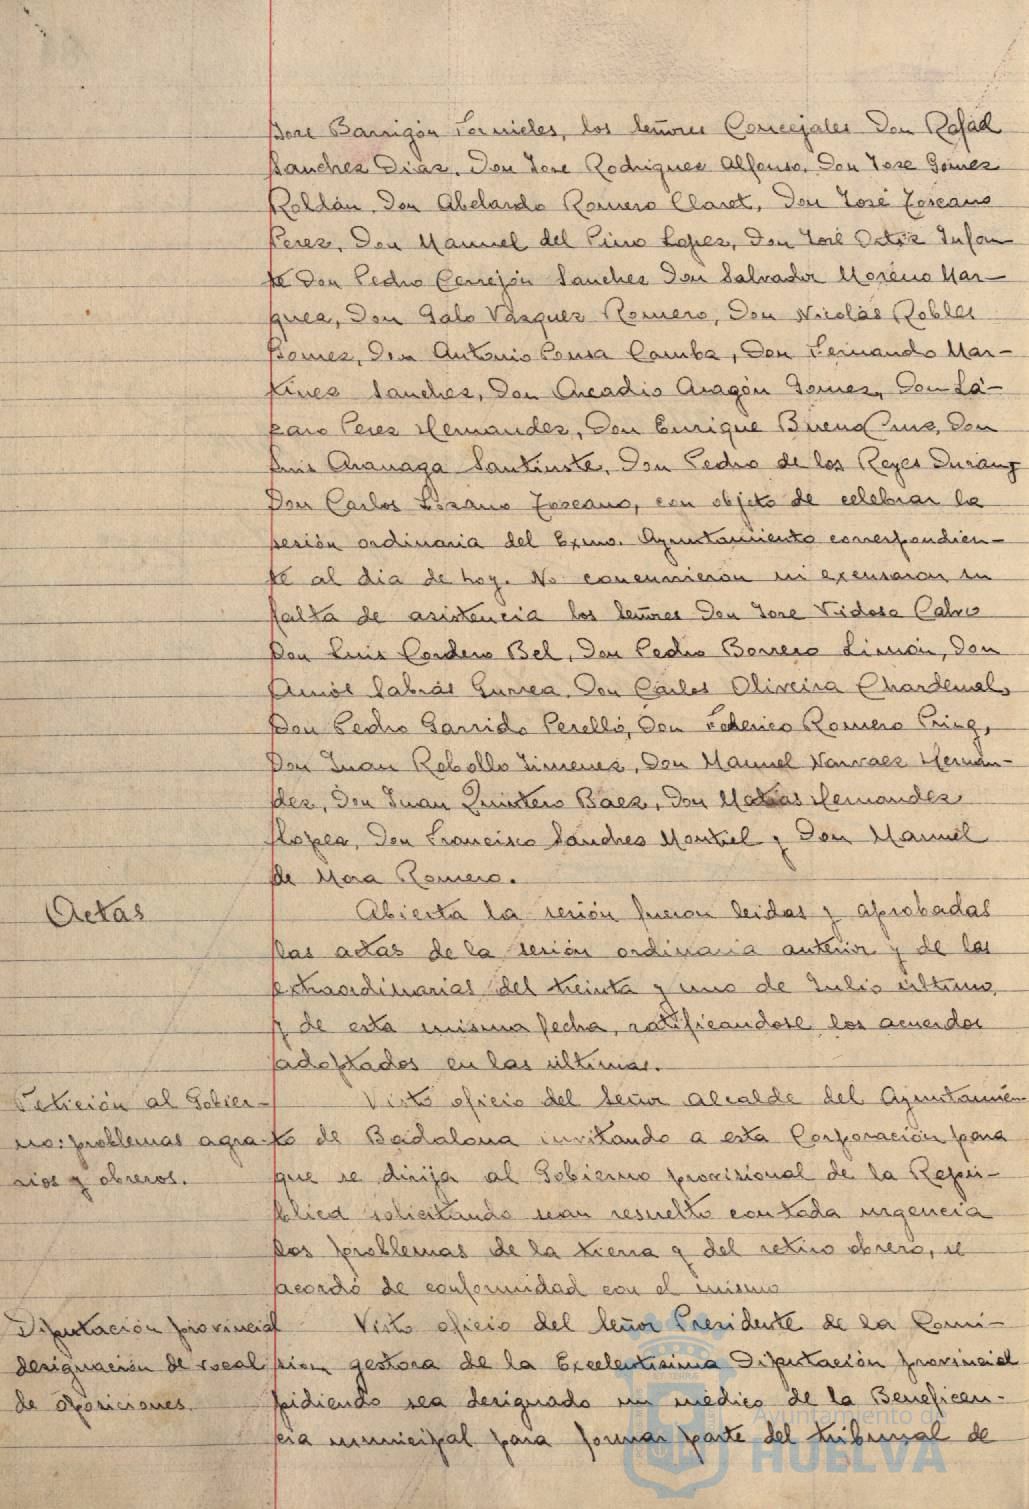 Jose Barrigón Fornieles, los Señores Concejales Don Rafael
Sanchez Diaz, Don Jose Rodriguez Alfonso, Don Jose Gomez
Roldán, Don Abelardo Romero Claret, Don José Toscano
Perez, Don Manuel del Pino Lopez, Don José Ortiz Infan-
te Don Pedro Cerrejón Sanchez Don Salvador Moreno Mar-
quez, Don Galo Vazquez Romero, Don Nicolás Robles
Gomez, Don Antonio Ponsa Camba, Don Fernando Mar-
tinez Sanchez, Don Arcadio Aragón Gomez, Don Lá-
zaro Perez Hernandez, Don Enrique Bueno Cruz, Don
Luis Aranaga Santiuste, Don Pedro de los Reyes Duran y
Don Carlos Lozano Toscano, con objeto de celebrar la
sesión ordinaria del Exmo. Ayuntamiento correspondien-
te al dia de hoy. No concurrieron ni excusaron su
falta de asistencia los Señores Don Jose Vidosa Calvo
Don Luis Cordero Bel, Don Pedro Borrero Limón, Don
Amós Sabrás Gurrea, Don Carlos Oliveira Chardenal,
Don Pedro Garrido Perelló, Don Federico Romero Pring,
Don Juan Rebollo Jimenez, Don Manuel Narvaez Hernan-
dez, Don Juan Quintero Baez, Don Matias Hernandez
Lopez, Don Francisco Sanchez Montiel y Don Manuel
de Mora Romero.
Actas
Abierta la sesión fueron leidas y aprobadas
las actas de la sesión ordinaria anterior y de las
extraordinarias del treinta y uno de Julio último,
y de esta misma fecha, ratificandose los acuerdos
adoptados en las últimas.
Petición al Gobier-
no: problemas agra-
rios y obreros.
Visto oficio del Señor Alcalde del Ayuntamien-
to de Badalona invitando a esta Corporación para
que se dirija al Gobierno provisional de la Repú-
blica solicitando sean resuelto con toda urgencia
los problemas de la tierra y del retiro obrero, se
acordó de conformidad con el mismo
Diputación provincial
designación de vocal
de oposiciones.
Visto oficio del Señor Presidente de la Comi-
sion gestora de la Excelentisima Diputación provincial
pidiendo sea designado un médico de la Beneficen-
cia municipal para formar parte del tribunal de
Ayuntamiento de
HUELVA